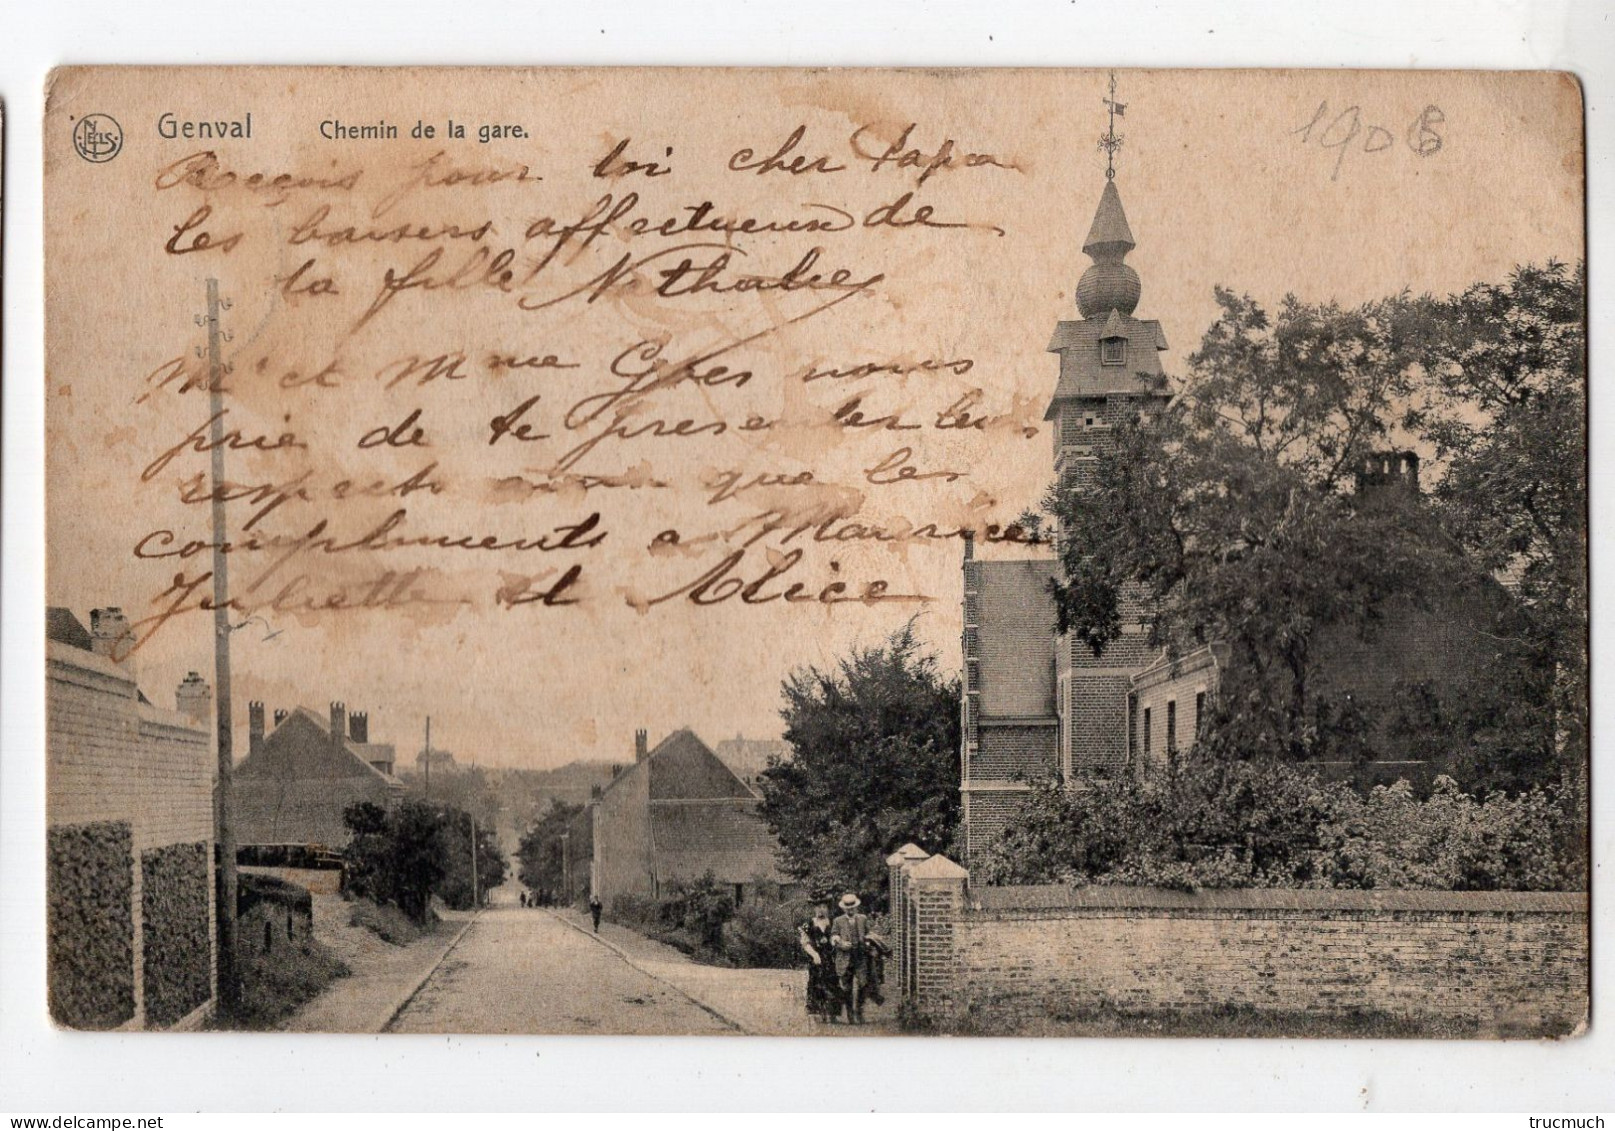 NELS
Genval Chemin de la gare.
1906
Reçois pour toi cher Papa
les baisers affectueux de
ta fille Nathalie
Mr et Mme Gybes nous
prie de te presenter leurs
respects ainsi que les
compliments a Maurice
Juliette et Alice
trucmuch